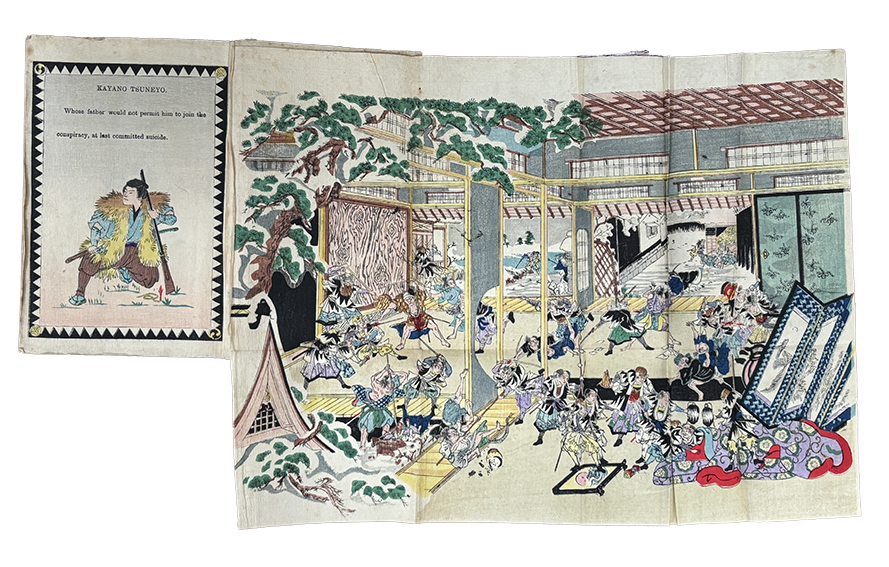 KAYANO TSUNEYO.
Whose father would not permit him to join the
conspiracy, at last committed suicide.